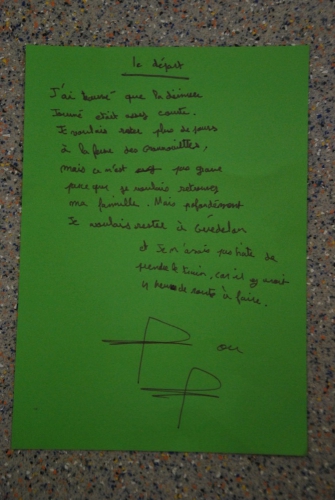 le départ
J'ai trouvé que la dernière
journé était assez courte.
Je voulais rester plus de jours
à la ferme des
mais ce n'est pas grave
parce que je voulais retrouver
ma famille. Mais
Je voulais rester à
et Je n'avais pas hâte de
prendre le train, car il y avait
4 heures de route à faire.
P ou
P